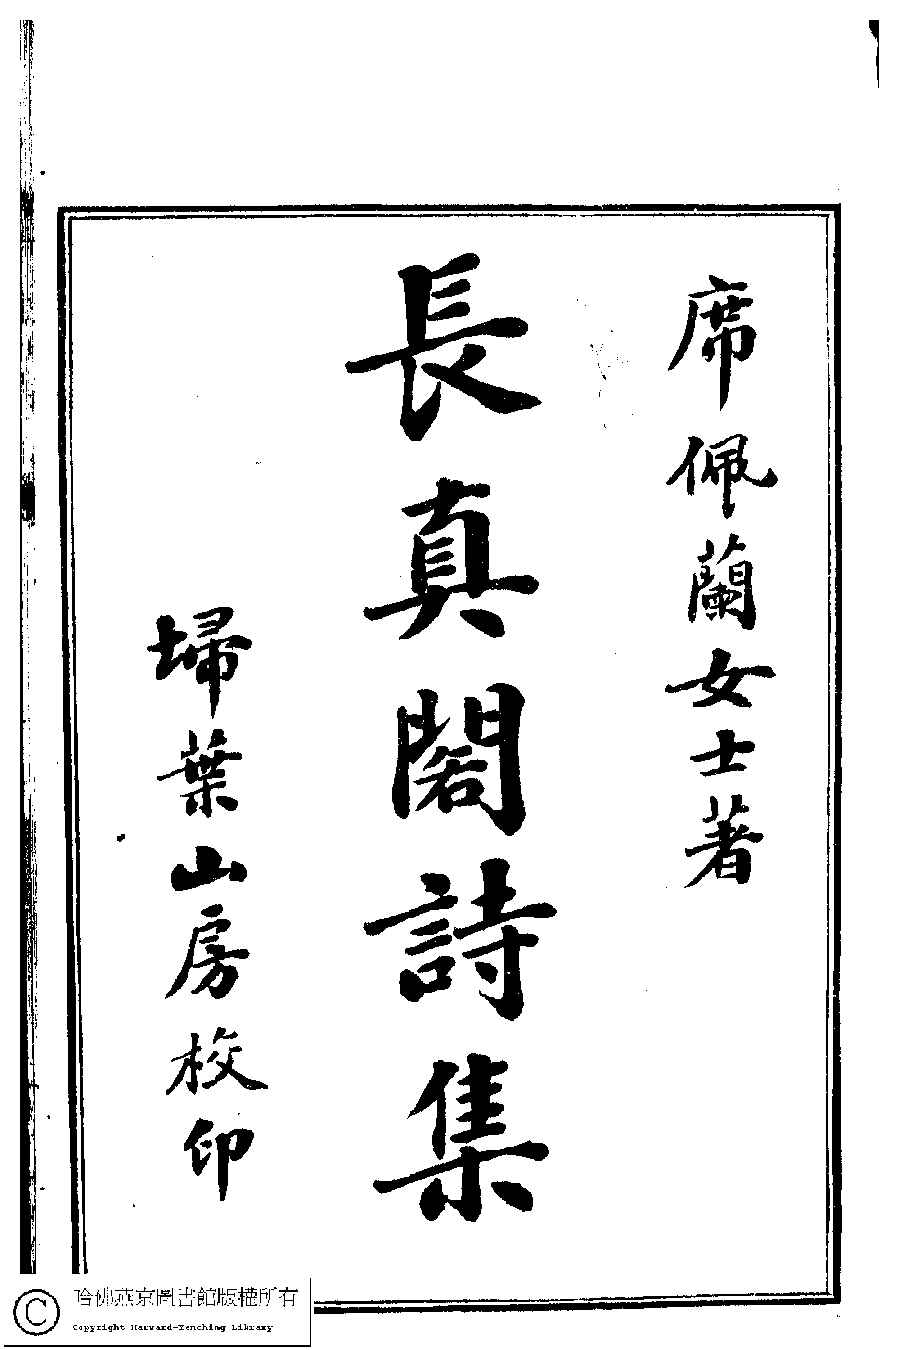 席佩蘭女士著
長真閣詩集
埽葉山房校印
哈佛燕京圖書館版權所有
Copyright Harvard-Yenching Library